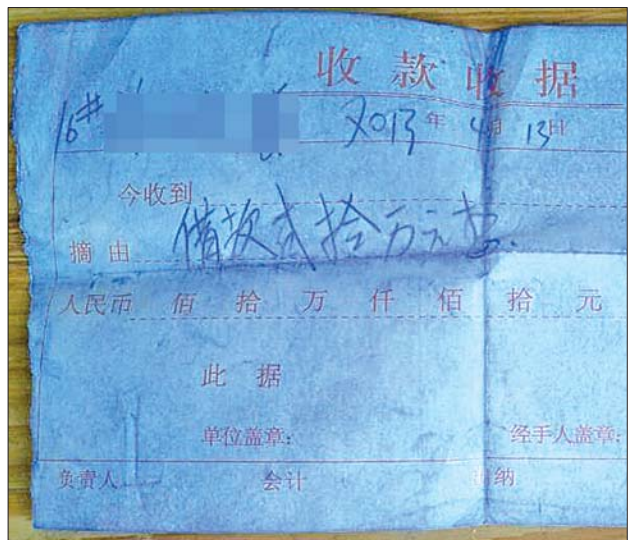 收款收据
16# 2013年 4月 13日
今收到
摘由 借款贰拾万元整.
人民币 佰 拾 万 仟 佰 拾 元
此据
单位盖章: 经手人盖章:
负责人 会计 出纳